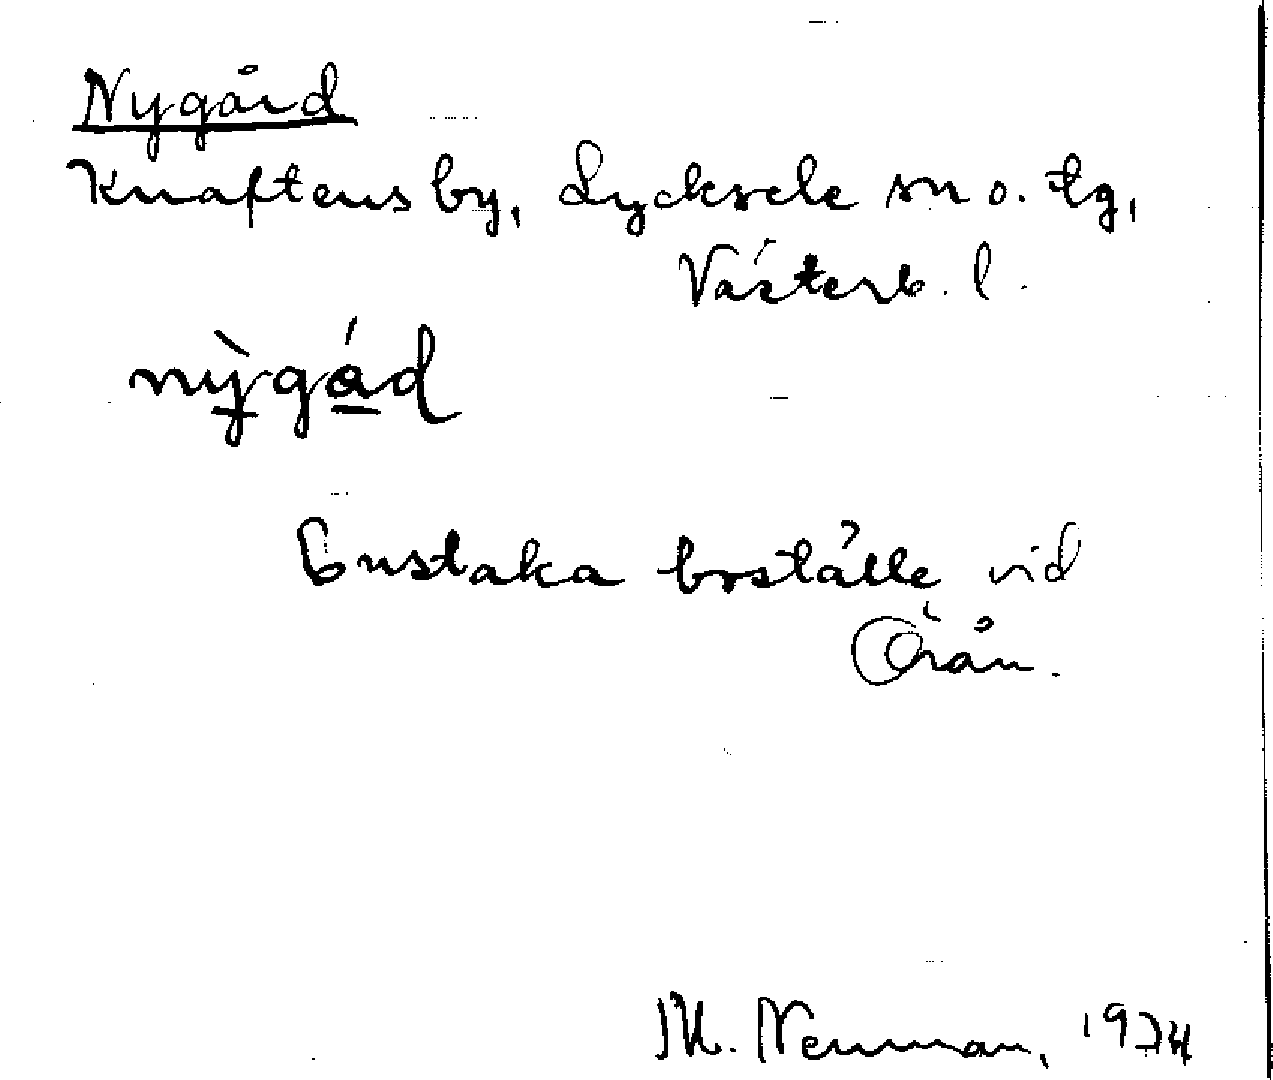 Nygård
Knaftens by, Lycksele sn o. tg,
Västerb. l.
nỳgád
Enstaka boställe vid
Örån.
M. Neuman, 1934